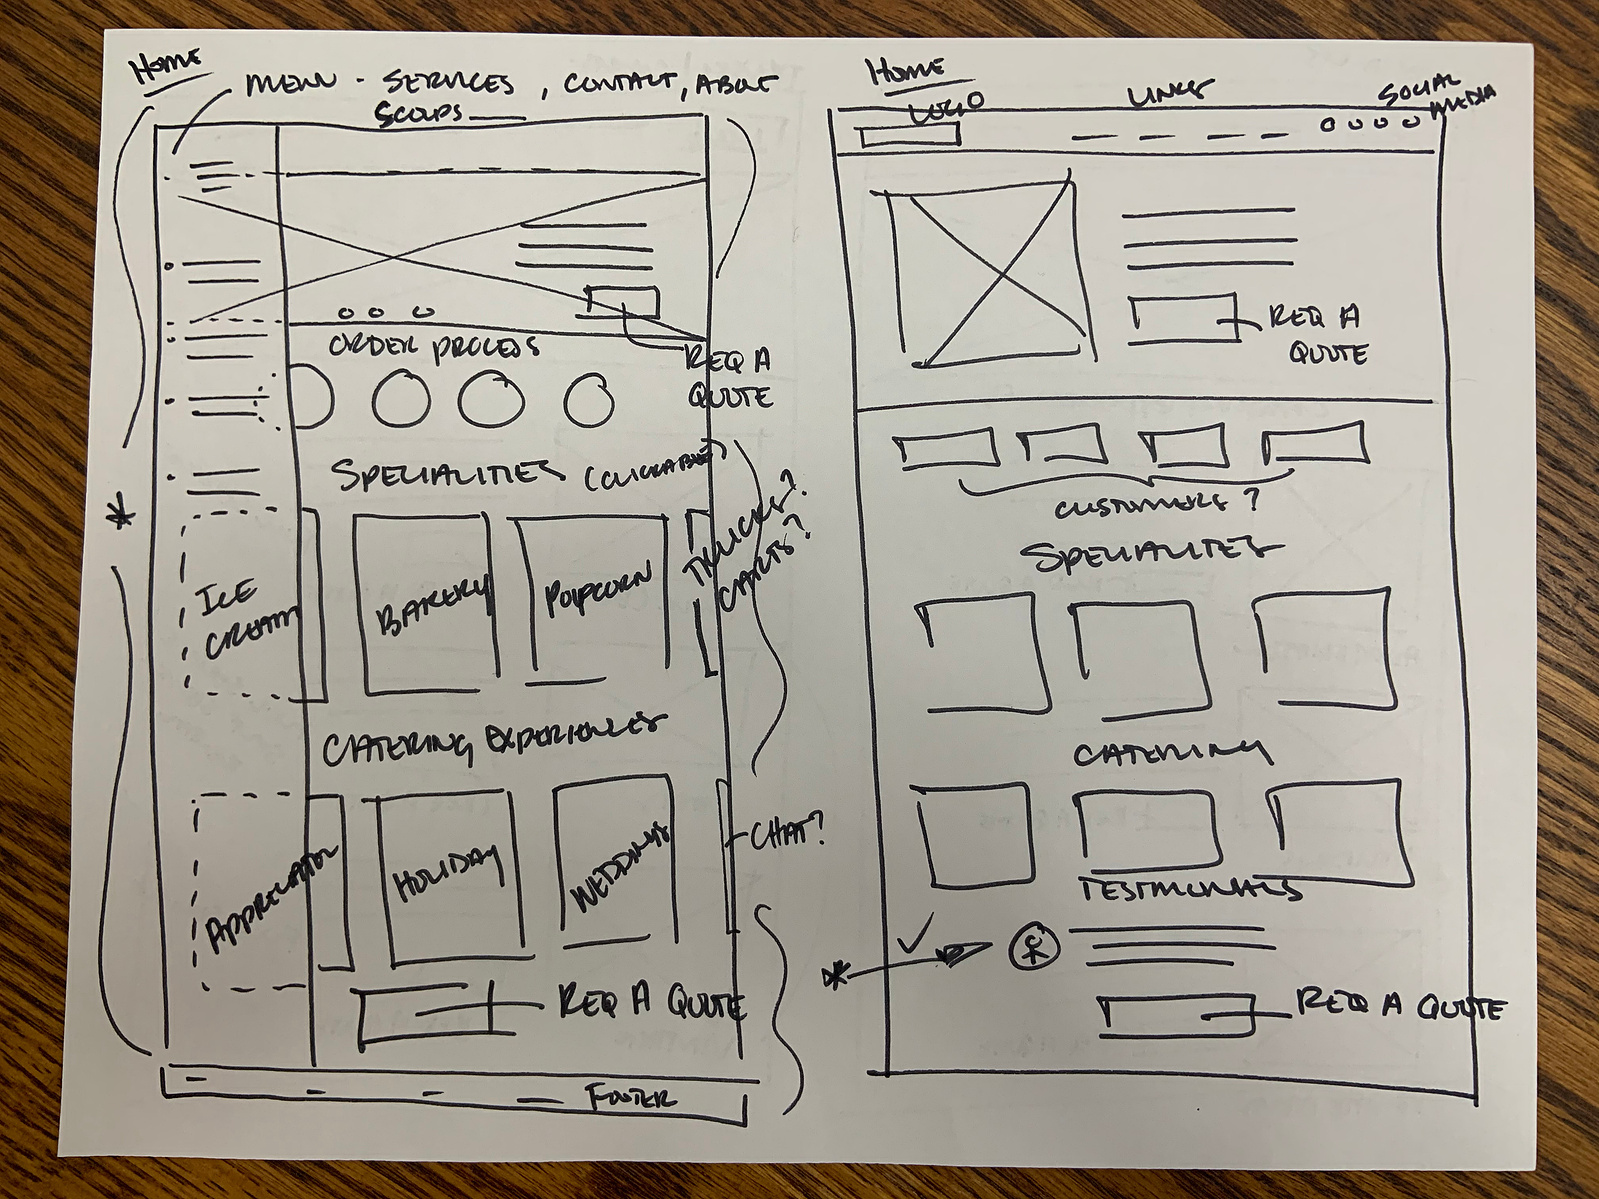 Home
MENU - SERVICES, CONTACT, ABOUT
SCOUPS
ORDER PROCESS
REQ A
QUOTE
SPECIALITIES (CLICKABLE)
ICE
CREAM
BAKERY
POPCORN
TRUCKS?
CARTS?
CATERING EXPERIENCES
HOLIDAY
WEDDING
CHAT?
REQ A QUOTE
FOOTER
Home
LOGO
LINKS
SOCIAL
MEDIA
REQ A
QUOTE
CUSTOMERS?
SPECIALITES
CATERING
TESTIMONIALS
REQ A QUOTE